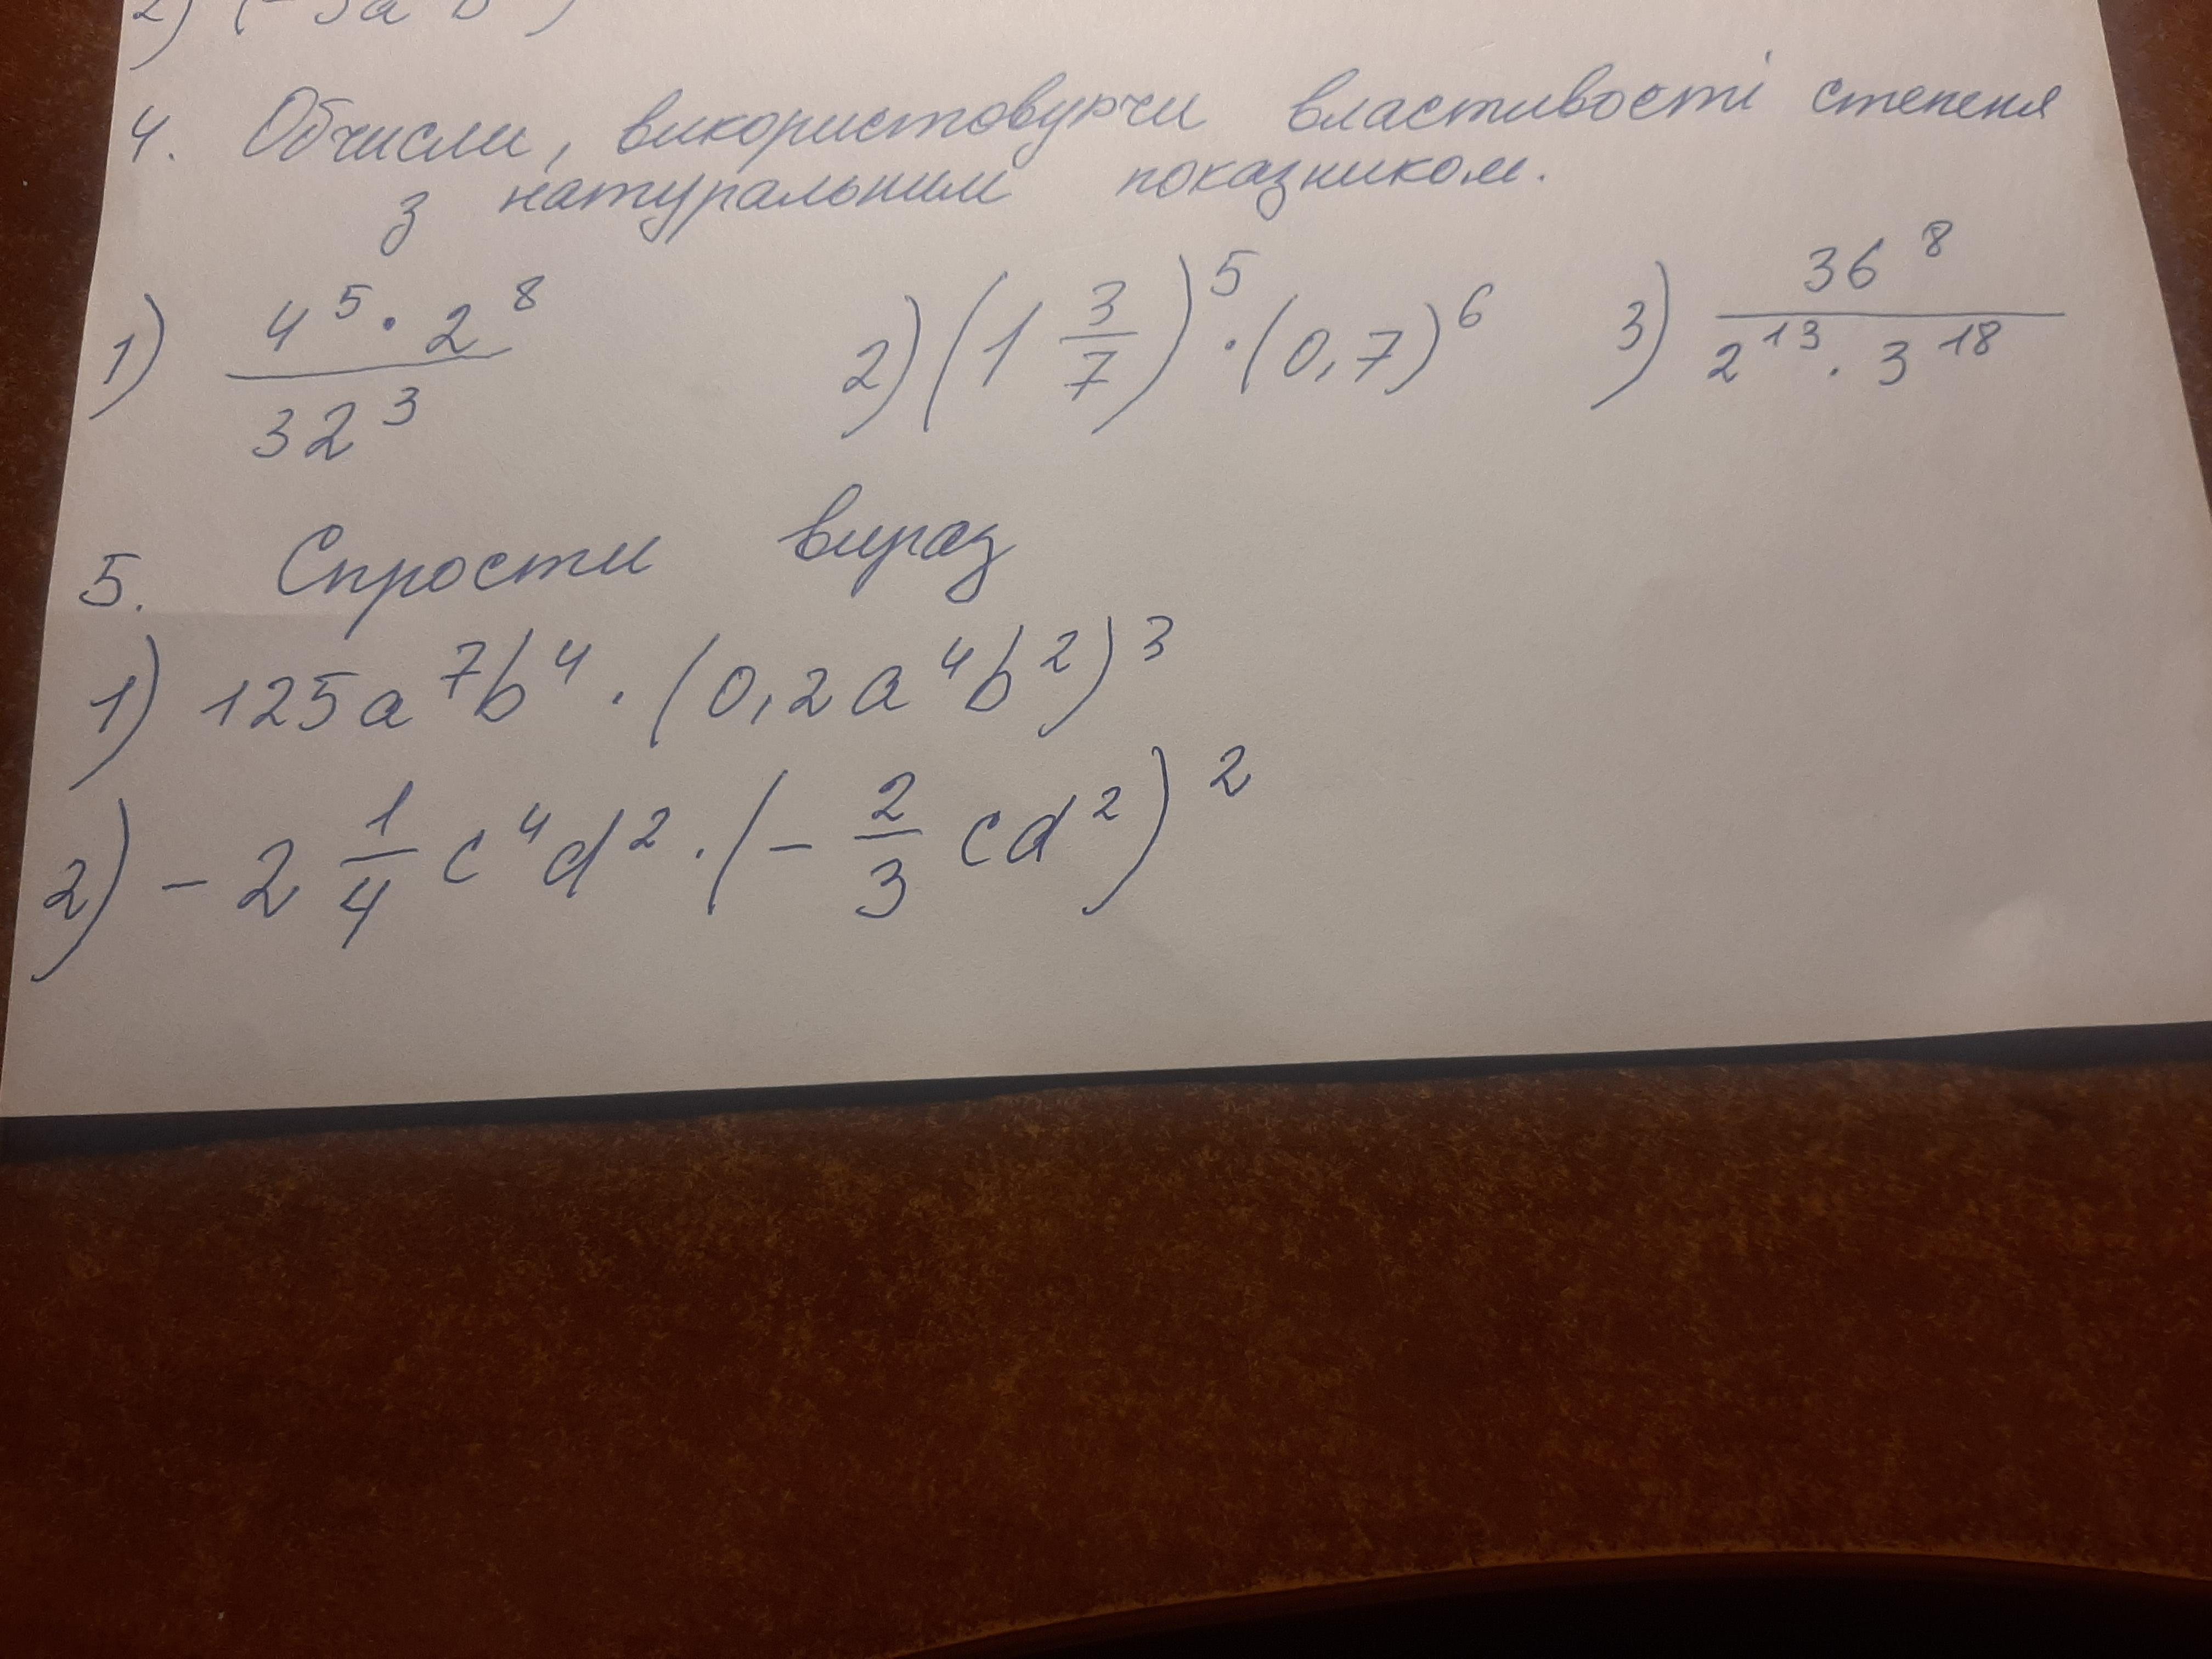 4. Обчисли, використовуючи властивості степеня
з натуральним показником.
1) \frac{4^5 \cdot 2^8}{32^3} 2) (1\frac{3}{7})^5 \cdot (0,7)^6 3) \frac{36^8}{2^{13} \cdot 3^{18}}
5. Спрости вираз
1) 125a^7b^4 \cdot (0,2a^4b^2)^3
2) -2\frac{1}{4}c^4d^2 \cdot (-\frac{2}{3}cd^2)^2